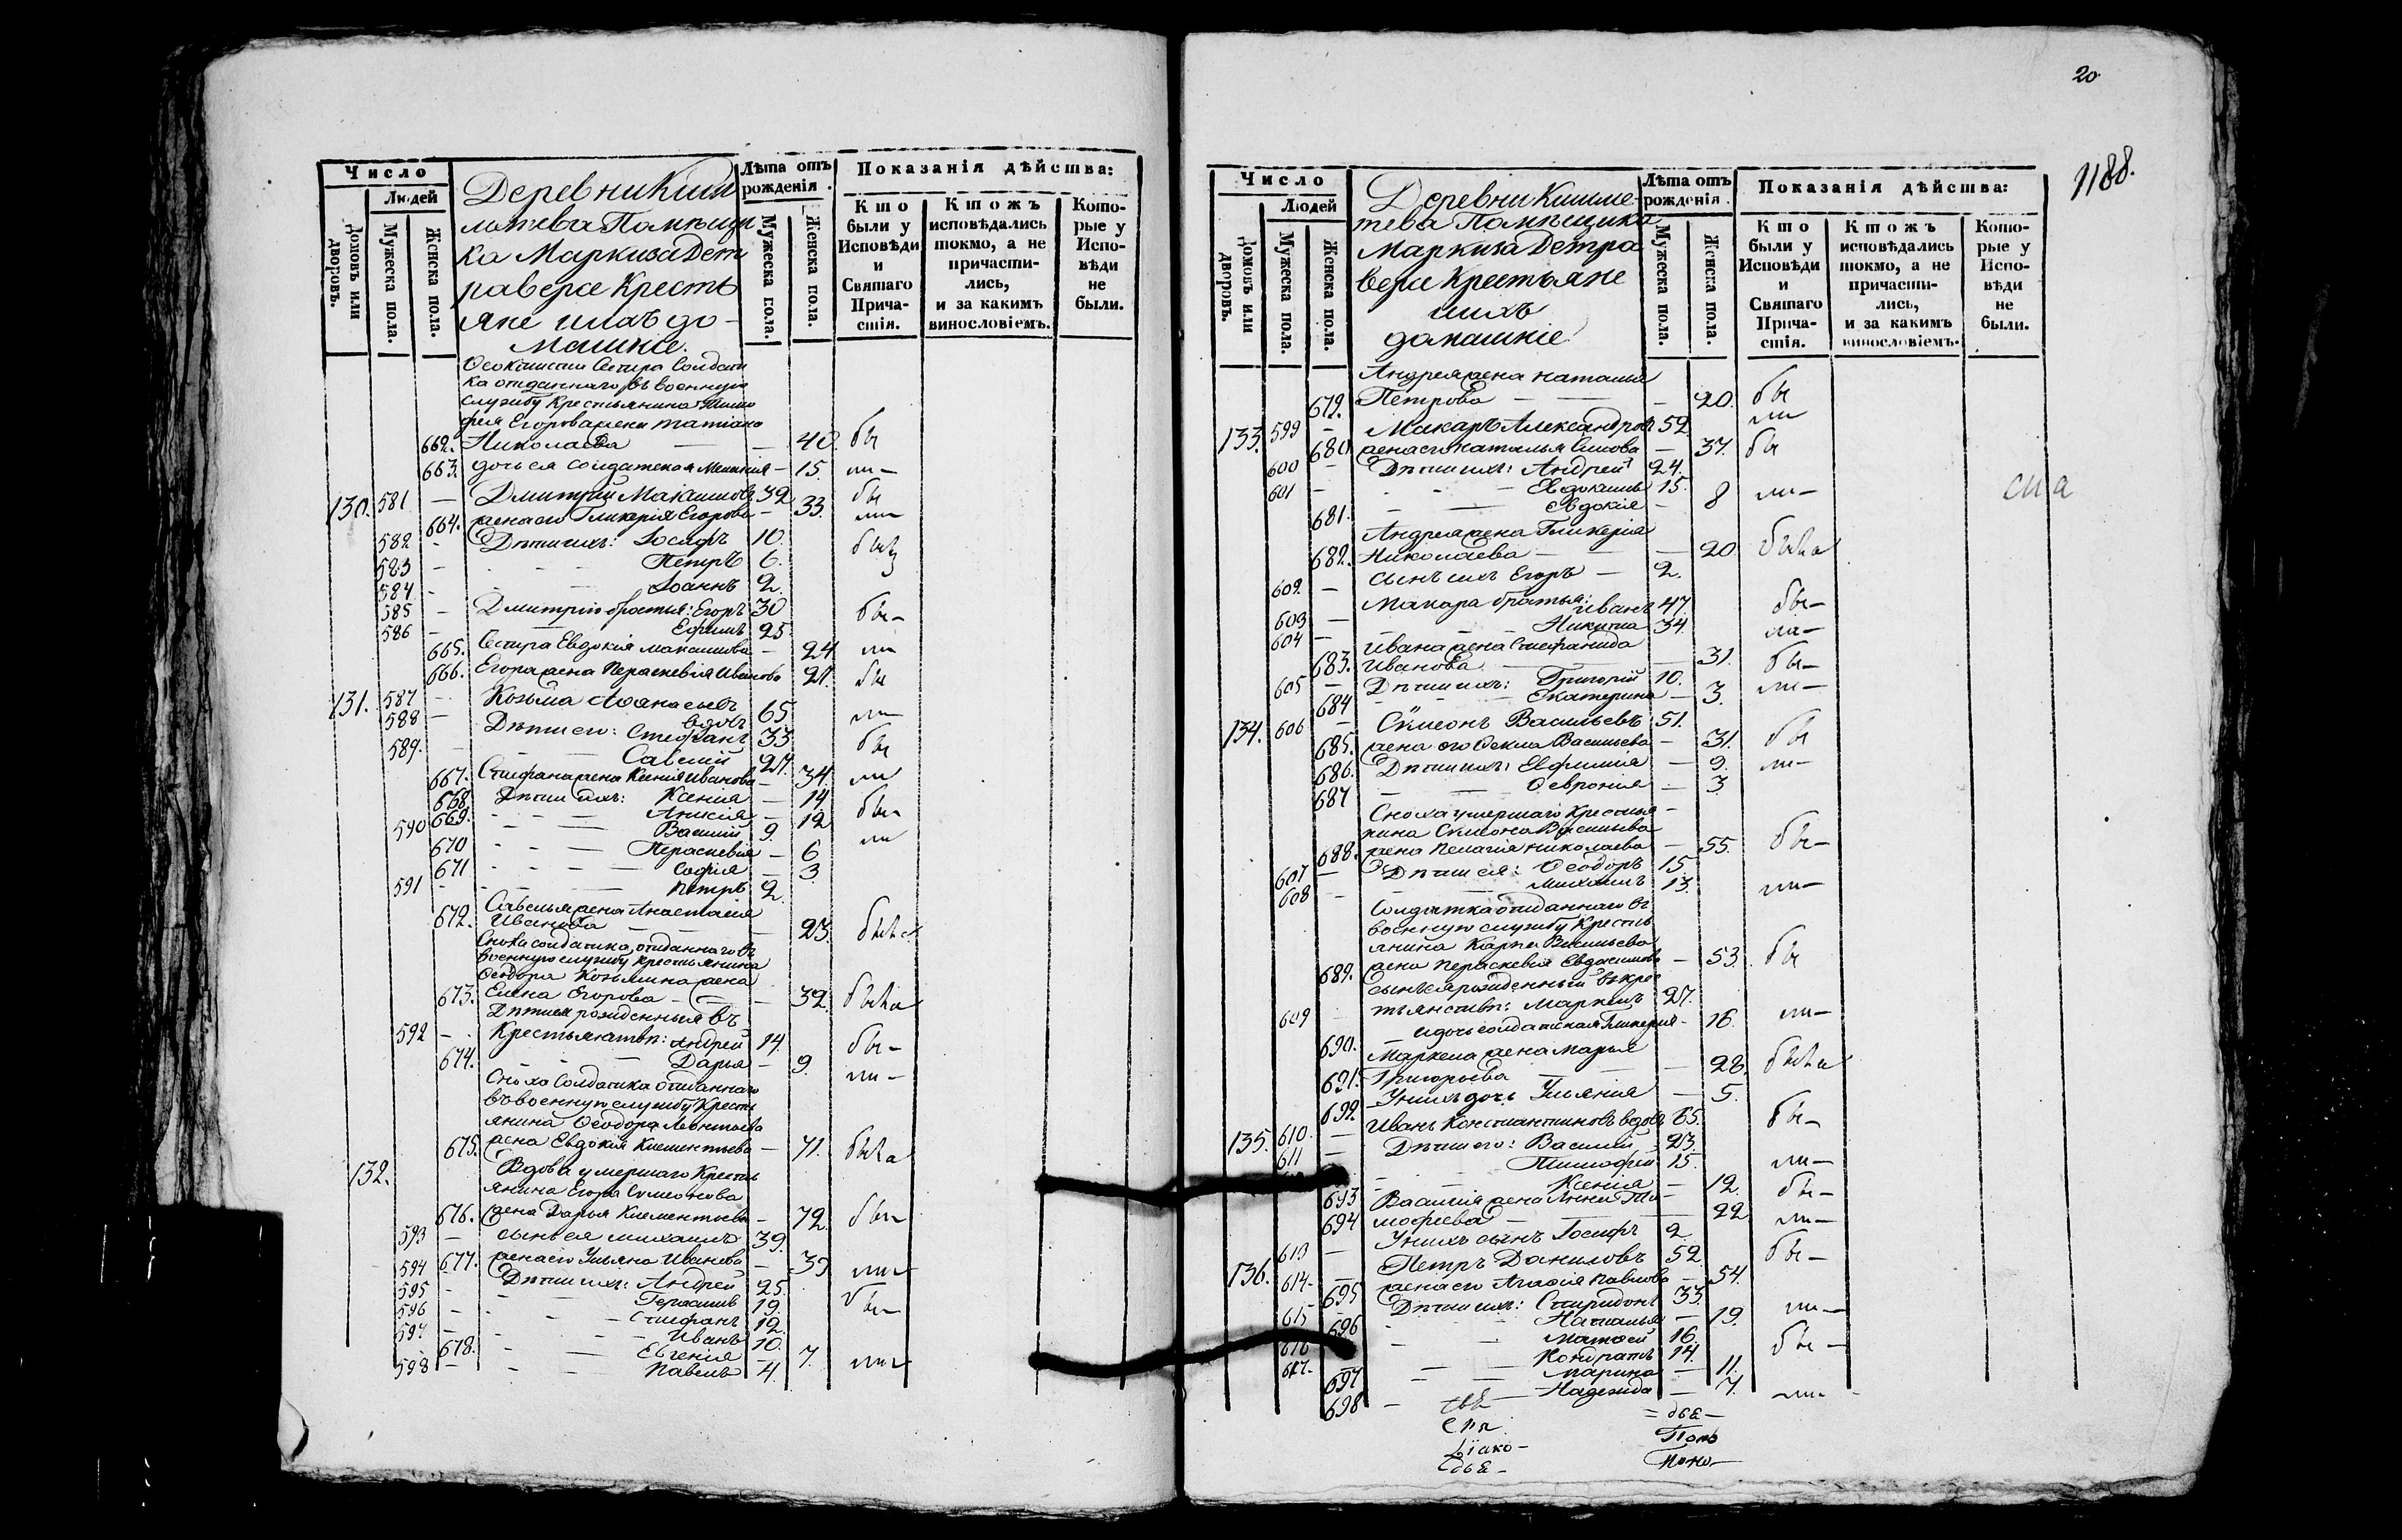 Число
Людей
Домовъ или дворовъ.
Мужеска пола.
Женска пола.
Деревни Ким
матева Помѣщи
ка Маркиза Дет
раверсе Кресть
яне ихъ до-
машніе.
Лѣта отъ рожденія.
Мужеска пола.
Женска пола.
Показанія дѣйства:
Кто были у Исповѣди и Святаго Причастія.
Ктожъ исповѣдались токмо, а не причастились, и за какимъ винословіемъ.
Которые у Исповѣди не были.
сестра солдат
ка отданнаго въ военную
службу крестьянина Тимо
фея Егорова жена татіана
662. Николаева — — 40. бы
663. дочь ея солдатская — 15. ли—
130. 581 — Дмитрій Максимовъ 32 бы
664. жена его Гликерія Егорова — 33. ли
582 — Дѣти ихъ: Іосифъ 10.
583 — Петръ 6.
584 — Іоаннъ 2.
585 — Дмитрія братья: Егоръ 30
586 — Ефимъ 25 бы—
665. Сестра Евдокія Максимова — 24 ли
666. Егора жена Параскевія Иванова 21. бы
131. 587 — Козьма Аѳанасьевъ
вдовъ 65 ли
588 — Дѣти его: Стефанъ 33
589. — Савелій 27. бы
667. Стефана жена Ксенія Иванова — 34. ли
668. Дѣти ихъ: Ксенія — 14
669. Анисія — 12 бы
590 Василій 9.
670 Параскевія — 6 ли
671 София — 3
591 Петръ 2.
Савелья жена Анастасія
672. Иванова — 23. была
Сноха солдатка, отданнаго въ
военную службу крестьянина
Ѳеодора Козьмина жена
673. Елена Егорова — 32. была
Дѣти ея рожденныя въ
592 — Крестьянствѣ: Андрей 14. бы—
674. Дарья — 9. ли—
Сноха Солдатка отданнаго
въ военную службу Кресть
янина Ѳеодора Леонтьева
675. жена Евдокія Климентьева — 71. была
132. Вдова умершаго Кресть
янина Егора Симеонова
676. жена Дарья Климентьева — 72. бы
593 — сынъ ея Михаилъ 39.
677. жена его Ульяна Иванова — ли
594 Дѣти ихъ: Андрей 25.
595 — Герасимъ 19. бы—
596 — Стефанъ 12.
597 — Иванъ 10.
678. Евгенія 7.
598 — Павелъ 4. ли
20
1188.
Число
Людей
Домовъ или дворовъ.
Мужеска пола.
Женска пола.
Деревни Кимма-
тева Помѣщика
Маркиза Детра
версе Крестьяне
ихъ
домашніе
Лѣта отъ рожденія.
Мужеска пола.
Женска пола.
Показанія дѣйства:
Кто были у Исповѣди и Святаго Причастія.
Ктожъ исповѣдались токмо, а не причастились, и за какимъ винословіемъ.
Которые у Исповѣди не были.
Андрея жена наталья
679. Петрова — — 20. бы
133. 599 — Макаръ Александровъ 52. ли
680. жена его наталья — 37. бы
600 — Дѣти ихъ: Андрей 24.
601 — Евдокимъ 15.
681. Евдокія — 8 ли—
Андрея жена Гликерія
682. Николаева — — 20. была
602. — сынъ ихъ Егоръ — 2.
603 — Макара братья: Иванъ 47. бы—
604 — Никита 34. ли—
Ивана жена Стефанида
683. Иванова — 31. бы—
605 — Дѣти ихъ: Григорій 10.
684 Екатерина — 3. ли—
134. 606 — Симеонъ Васильевъ 51.
685. жена его Ѳекла Васильева — 31. бы
686. Дѣти ихъ: Евфимія — 9. ли—
687 Ѳевронія — 3
Сноха умершаго Крестья-
нина Симеона Васильева
688. жена Пелагія Николаева — 55. бы—
607 — Дѣти ея: Ѳеодоръ 15
608 — Михаилъ 13. ли—
Солдатка отданнаго въ
военную службу Кресть
янина Карпа Васильева
689. жена Параскевія Евдокимова — 53. бы
сынъ ея рожденный въ кре
609 стьянствѣ: Маркелъ 27.
690. и дочь солдатская Гликерія — 16. ли—
Маркела жена Марья
691. Григорьева — 28. была
692 У нихъ дочь Ульянія — 5.
135. 610 — Иванъ Константиновъ вдовъ 65. бы—
611 — Дѣти его: Василій 23.
Тимофей 15. ли—
693 Ксенія — 12.
Василія жена Анна Ти- бы—
694 мофеева — 22
613 — У нихъ сынъ Іосифъ 2 ли—
136. 614 — Петръ Даниловъ 52. бы—
695 жена его Агафія Павлова — 54.
615 Дѣти ихъ: Спиридонъ 33.
696 Наталья — 19. ли—
616 Матѳей 16.
617. Кондратъ 14. бы—
697 Марина — 11.
698 — Надежда — 7. ли
Діако-